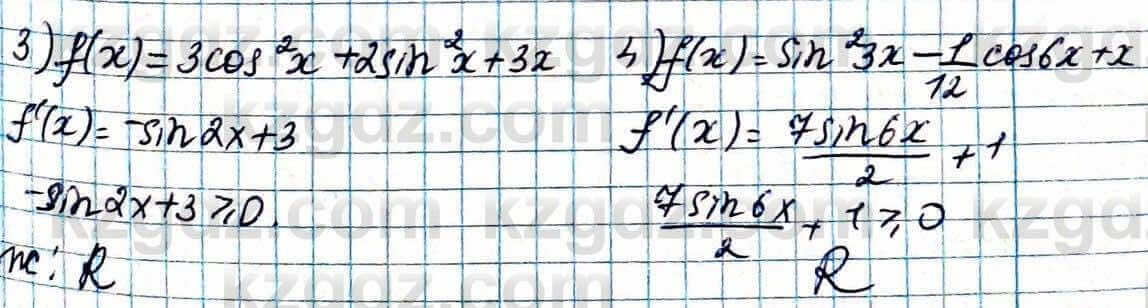 3) f(x) = 3cos²x + 2sin²x + 3x
f'(x) = -sin2x + 3
-sin2x + 3 ≥ 0.
R
4) f(x) = sin²3x - 1/12 cos6x + x
f'(x) = 7sin6x/2 + 1
7sin6x/2 + 1 ≥ 0
R
kzgdz.com